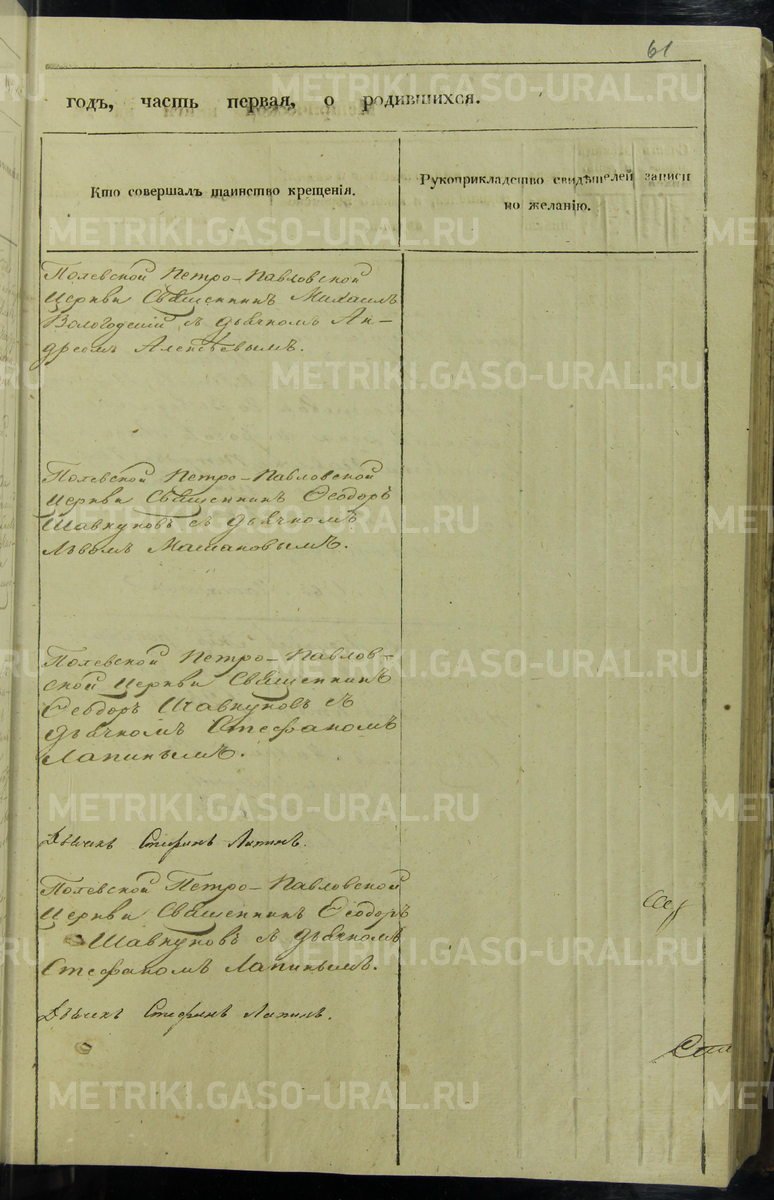 61
годъ, часть первая, о родившихся.
Кто совершалъ таинство крещенія.
Рукоприкладство свидѣтелей записи
по желанію.
Полевской Петро-Павловской
Церкви Священникъ Михаилъ
Вологодскій съ дьячкомъ Ан-
дреемъ Алексѣевымъ.
Полевской Петро-Павловской
Церкви Священникъ Ѳеодоръ
Шавкуновъ съ дьячкомъ
Львомъ
Полевской Петро-Павлов-
ской Церкви Священникъ
Ѳеодоръ Шавкуновъ съ
дьячкомъ Стефаномъ
Лапинымъ.
Дьячекъ Стефанъ Лапинъ.
Полевской Петро-Павловской
Церкви Священникъ Ѳеодоръ
Шавкуновъ съ дьячкомъ
Стефаномъ Лапинымъ.
Дьячекъ Стефанъ Лапинъ.
METRIKI.GASO-URAL.RU